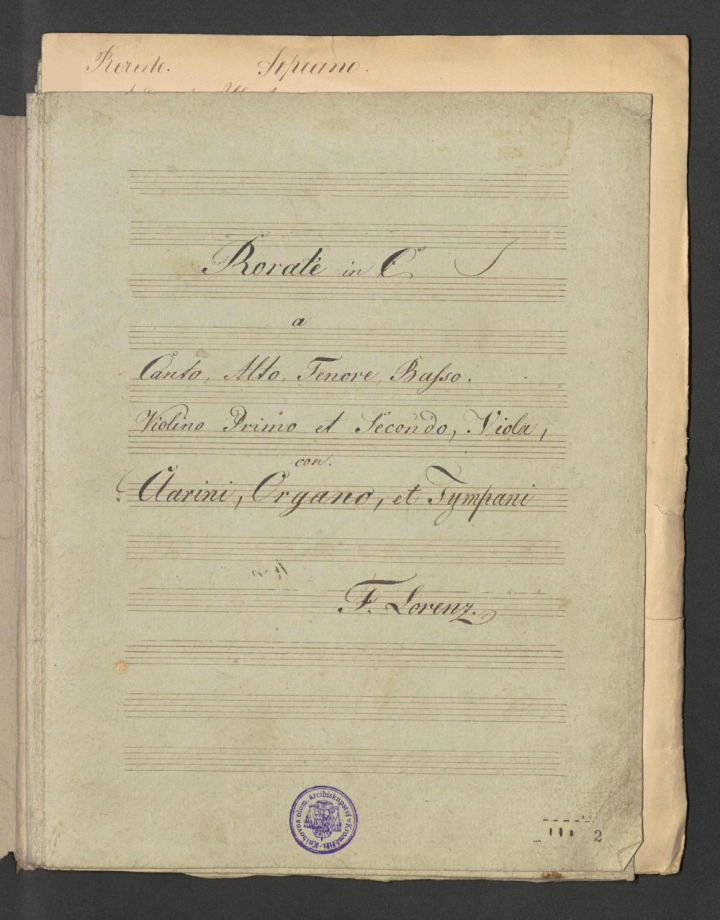 Rorate. Soprano.
Rorate in C
a
Canto, Alto, Tenore, Basso.
Violino Primo et Secondo, Viola,
con.
Clarini, Organo, et Tympani
F. Lorenz.
Knihovna olom. arcibiskupství v Kroměříži
2